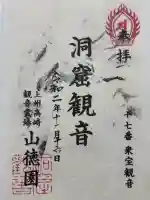 奉拝
十七番 東窟観音
洞窟観音
令和二年十一月十六日
上州高崎
観音霊場
山徳園